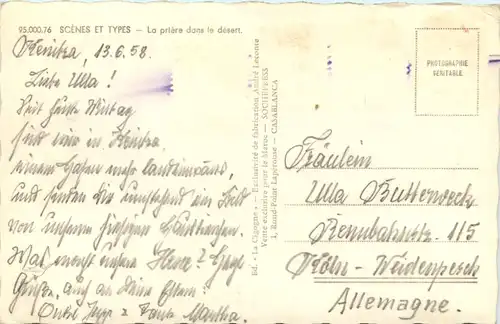 95.000.76 SCÈNES ET TYPES - La prière dans le désert.
Kenitra, 13.6.58.
Liebe Ulla!
Seit heute Mittag
sind wir in Kenitra,
einem Hafen mehr landeinwärts,
und senden Dir umstehend ein Bild
von unseren
Was macht unsere Herta? Herzl.
Grüße, auch an Deine Eltern!
Onkel Jupp u Tante Martha.
Ed. « La Cigogne » - Exclusivité de fabrication André Leconte
Vente exclusive pour le Maroc - SOCHEPRESS
1, Rond-Point Lapérouse - CASABLANCA
PHOTOGRAPHIE
VÉRITABLE
Fräulein
Ulla Butterweck
Rennbahnstr. 115
Köln-Weidenpesch
Allemagne.